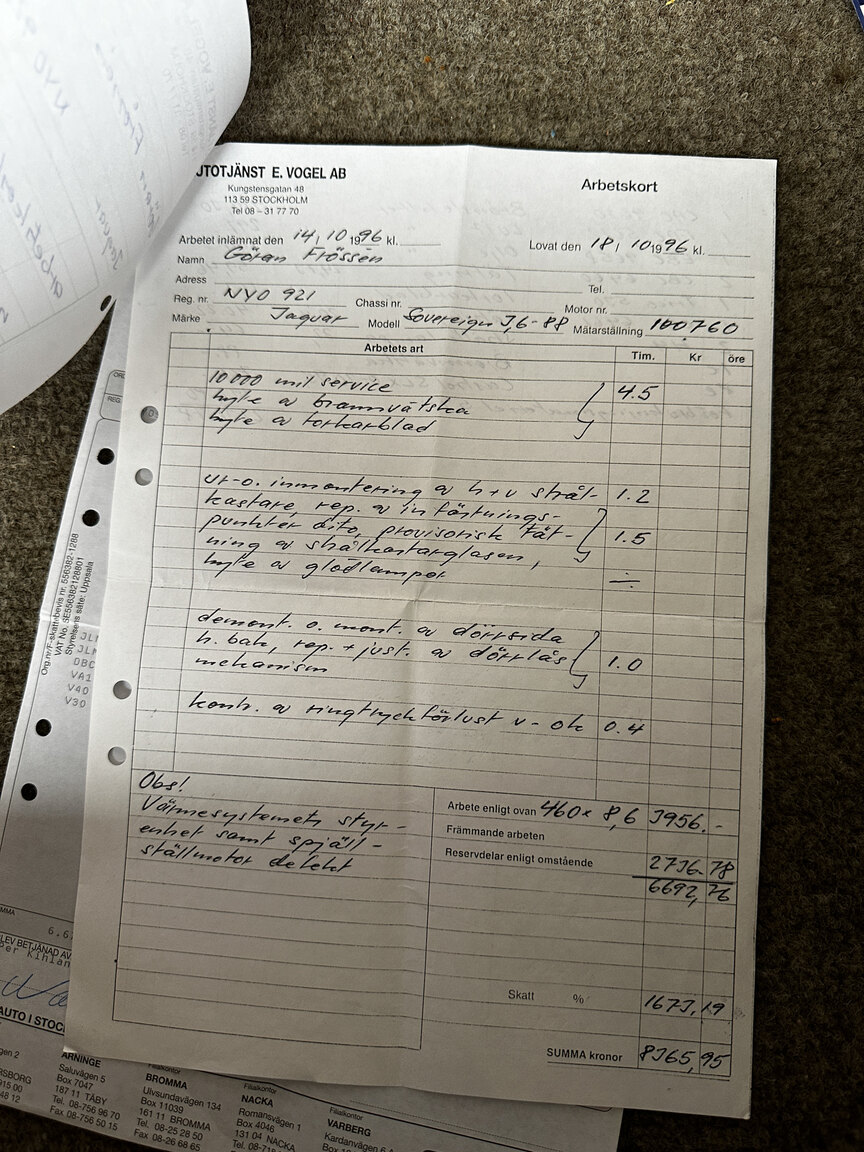 UTOTJÄNST E. VOGEL AB
Kungstensgatan 48
113 59 STOCKHOLM
Tel 08 – 31 77 70
Arbetskort
Arbetet inlämnat den 14/10 1996 kl.
Lovat den 18/10 1996 kl.
Namn Göran Frössén
Adress Tel.
Reg. nr. NYO 921 Chassi nr. Motor nr.
Märke Jaguar Modell Sovereign 3,6-88 Mätarställning 100760
Arbetets art Tim. Kr öre
10000 mil service 4.5
byte av bromsvätska
byte av torkarblad
ur-o. inmontering av h+v strål- 1.2
kastare, rep. av infästnings-
punkter dito, provisorisk tät- 1.5
ning av strålkastarglasen,
byte av glödlampor
demont. o. mont. av dörrsida
h. bak, rep. + just. av dörrlås 1.0
mekanism
kontr. av ringtryckförlust v - ok 0.4
Obs!
Värmesystemets styr-
enhet samt spjäll-
ställmotor defekt
Arbete enligt ovan 460x 8,6 3956.-
Främmande arbeten
Reservdelar enligt omstående 2736.78
6692,76
Skatt % 1673,19
SUMMA kronor 8365,95
Org.nr/F-skattebevis nr. 556382-1288
VAT No. SE556382128801
Styrelsens säte: Uppsala
DBC
VA1
V40
V30
6.6
LEV BETJÄNAD AV
Per Kihlan
AUTO I STOC
ARNINGE
Saluvägen 5
Box 7047
187 11 TÄBY
Tel. 08-756 96 70
Fax 08-756 50 15
Filialkontor
BROMMA
Ulvsundavägen 134
Box 11039
161 11 BROMMA
Tel. 08-25 28 50
Fax 08-26 68 65
Filialkontor
NACKA
Romansvägen 1
Box 4046
131 04 NACKA
Filialkontor
VARBERG
Kardanvägen 6